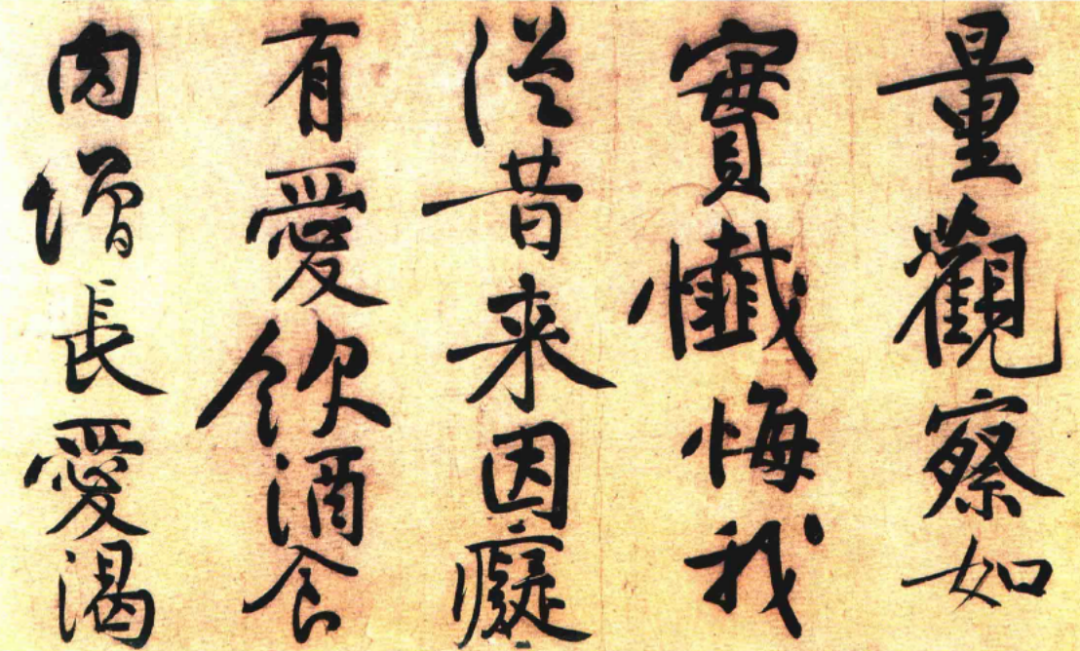 量觀察如
實懺悔我
從昔来因癡
有愛飲酒食
肉增長愛渴